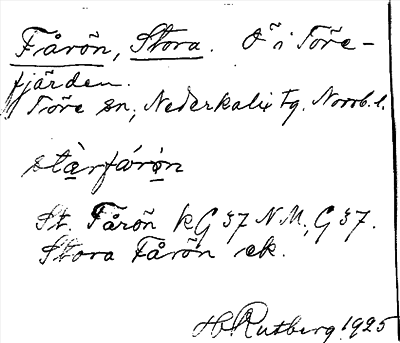 Fårön, Stora. Ö i Töre-
fjärden.
Töre sn, Nederkalix tg. Norrb. l.
stàrfǻrø̣n
St. Fårön kG 37 NM, G 37.
Stora Fårön ek.
H Rutberg 1925